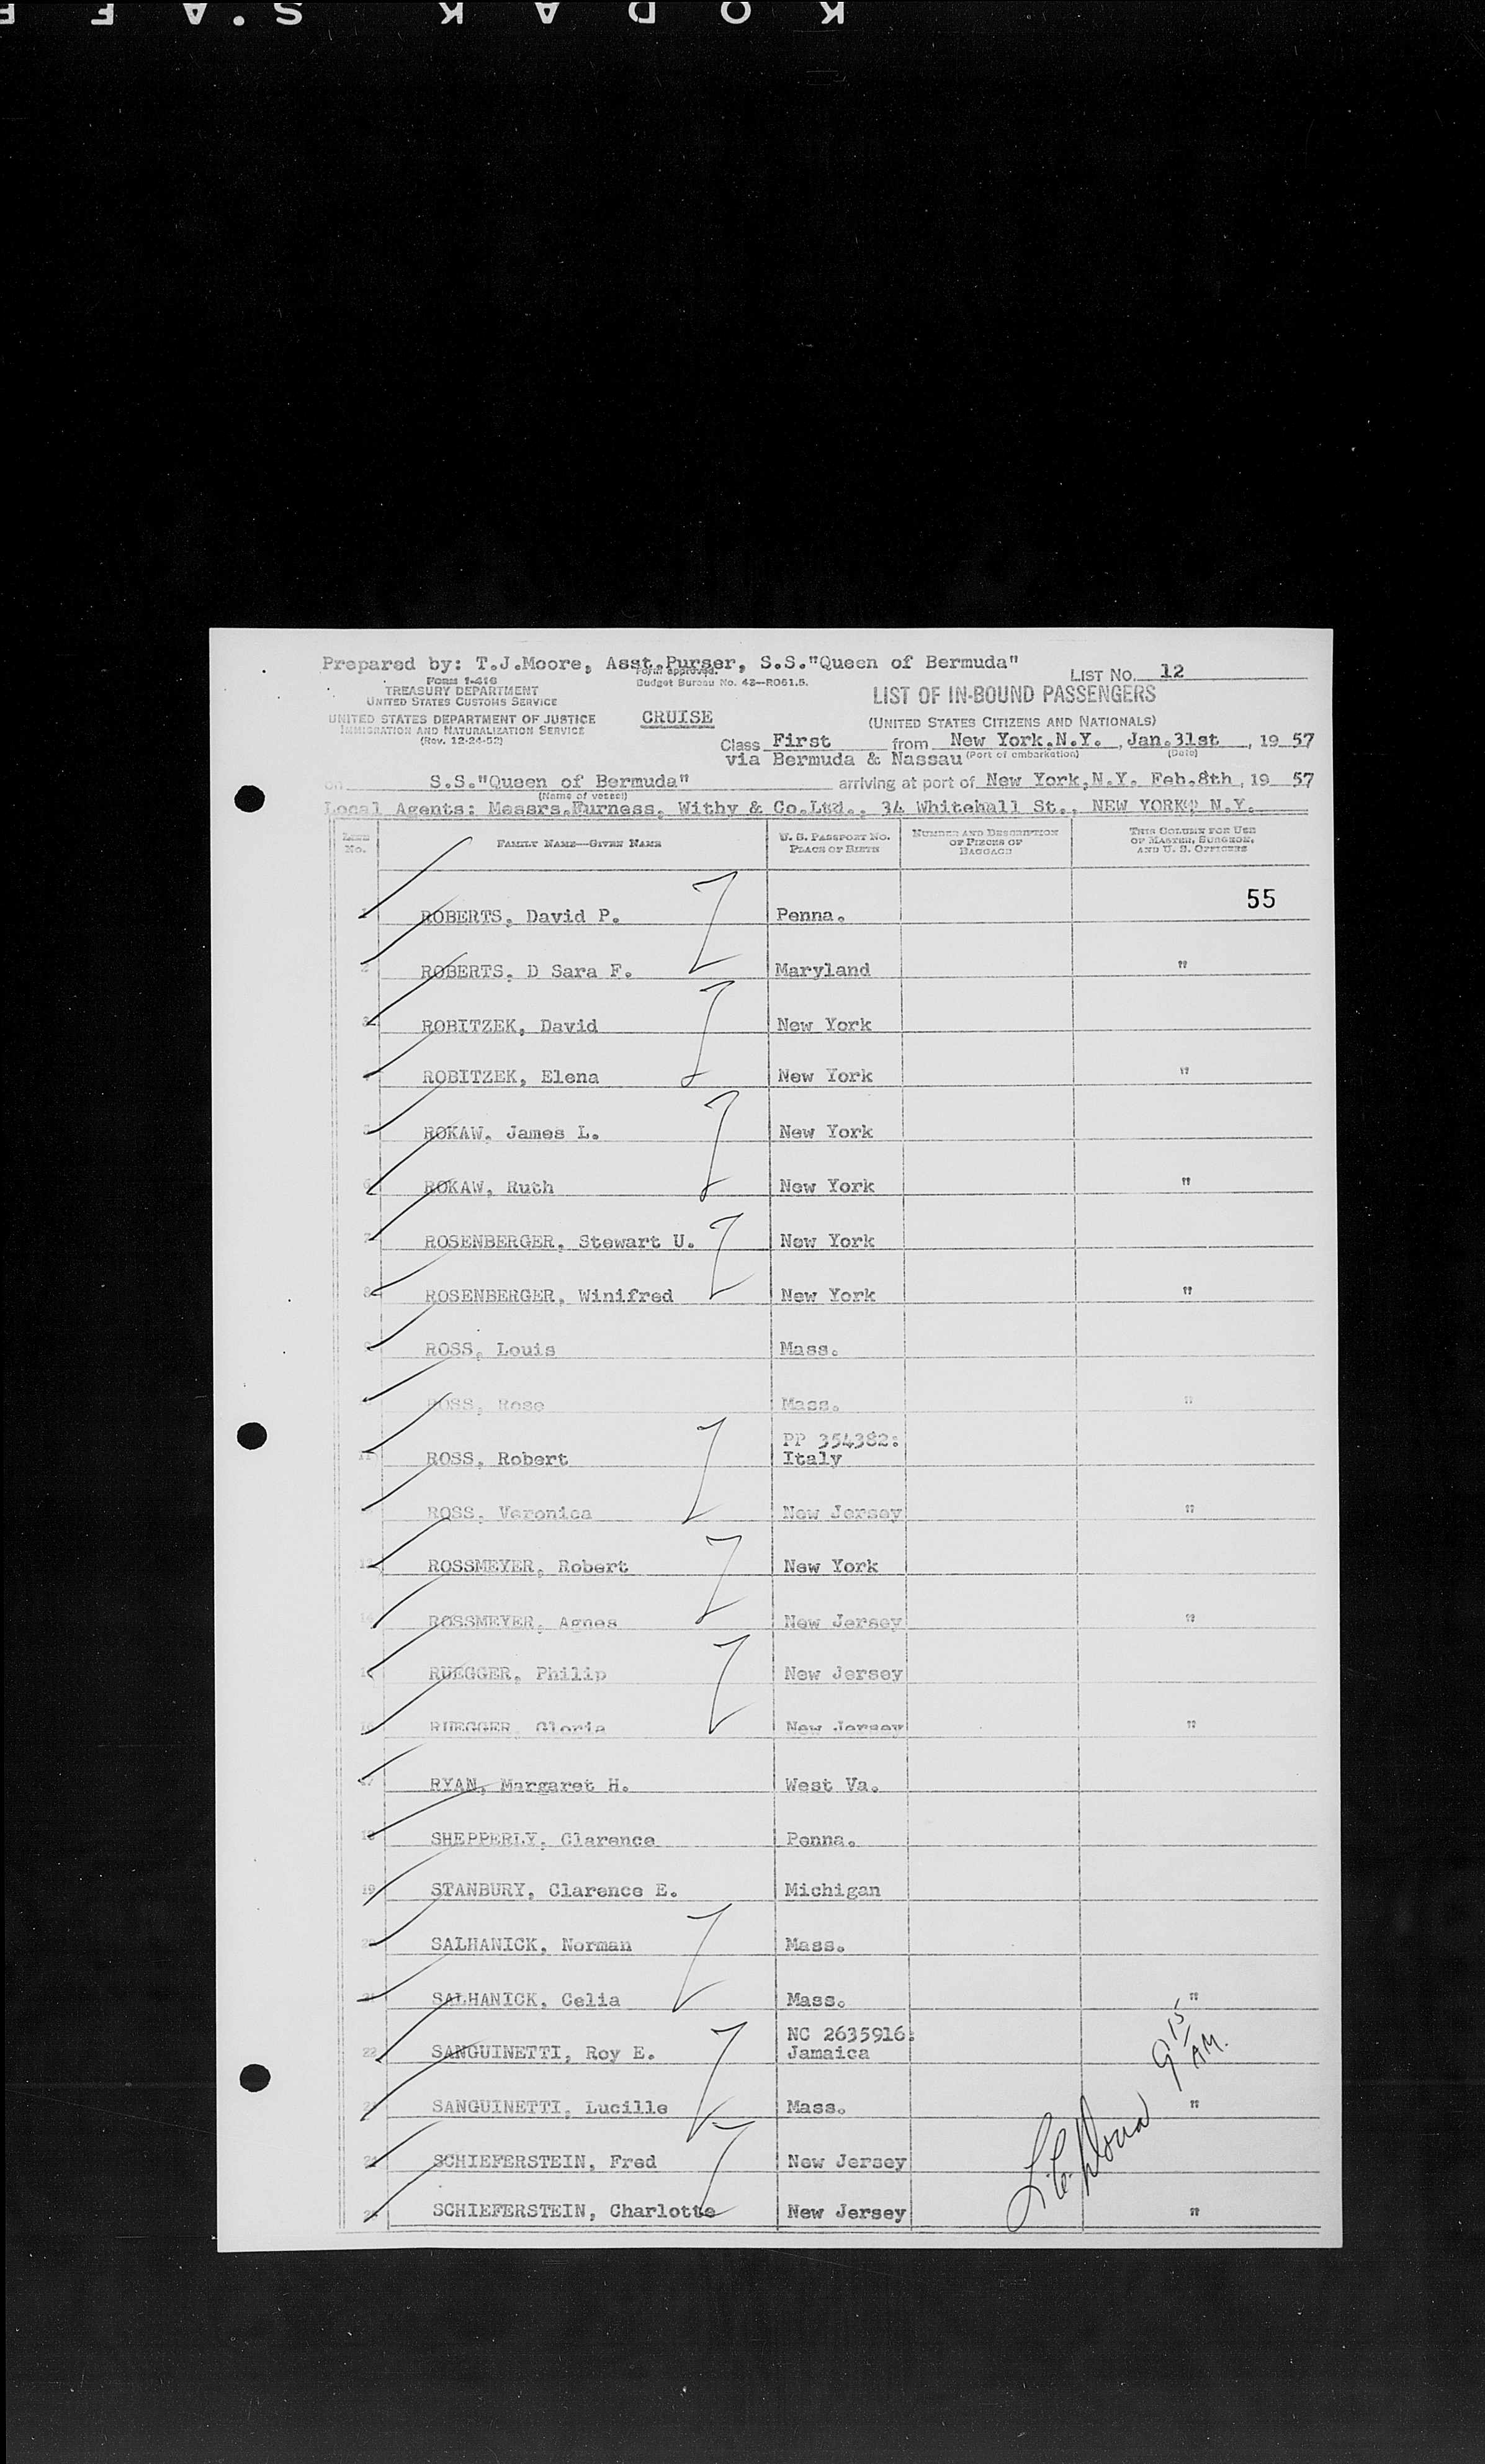 KODAK S.A.F
Prepared by: T.J.Moore, Asst.Purser, S.S."Queen of Bermuda"
Form approved.
Budget Bureau No. 43-R061.5.
LIST No. 12
FORM I-416
TREASURY DEPARTMENT
UNITED STATES CUSTOMS SERVICE
UNITED STATES DEPARTMENT OF JUSTICE
IMMIGRATION AND NATURALIZATION SERVICE
(Rev. 12-24-52)
CRUISE
LIST OF IN-BOUND PASSENGERS
(UNITED STATES CITIZENS AND NATIONALS)
Class First from New York,N.Y. , Jan.31st , 19 57
via Bermuda & Nassau (Port of embarkation) (Date)
on S.S."Queen of Bermuda" arriving at port of New York,N.Y. Feb.8th , 19 57
(Name of vessel)
Local Agents: Messrs.Furness, Withy & Co.Ltd., 34 Whitehall St., NEW YORK, N.Y.
LINE No. FAMILY NAME—GIVEN NAME U. S. PASSPORT NO. PLACE OF BIRTH NUMBER AND DESCRIPTION OF PIECES OF BAGGAGE THIS COLUMN FOR USE OF MASTER, SURGEON, AND U. S. OFFICERS
55
1 ROBERTS, David P. Penna.
2 ROBERTS, D Sara F. Maryland "
3 ROBITZEK, David New York
4 ROBITZEK, Elena New York "
5 ROKAW, James L. New York
6 ROKAW, Ruth New York "
7 ROSENBERGER, Stewart U. New York
8 ROSENBERGER, Winifred New York "
9 ROSS, Louis Mass.
ROSS, Rose Mass. "
PP 354382:
11 ROSS, Robert Italy
ROSS, Veronica New Jersey "
13 ROSSMEYER, Robert New York
14 ROSSMEYER, Agnes New Jersey "
15 RUEGGER, Philip New Jersey
16 RUEGGER, Gloria New Jersey "
17 RYAN, Margaret H. West Va.
18 SHEPPERLY, Clarence Penna.
19 STANBURY, Clarence E. Michigan
20 SALHANICK, Norman Mass.
21 SALHANICK, Celia Mass. "
NC 2635916:
22 SANGUINETTI, Roy E. Jamaica
9 15 AM.
23 SANGUINETTI, Lucille Mass. "
24 SCHIEFERSTEIN, Fred New Jersey
25 SCHIEFERSTEIN, Charlotte New Jersey "